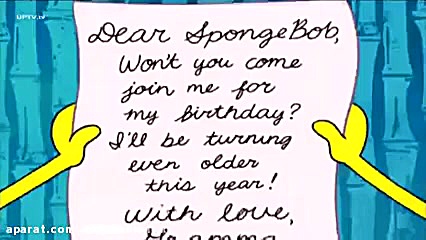 UPTV.tv
Dear SpongeBob,
Won't you come
join me for
my birthday?
I'll be turning
even older
this year!
With love,
aparat.com